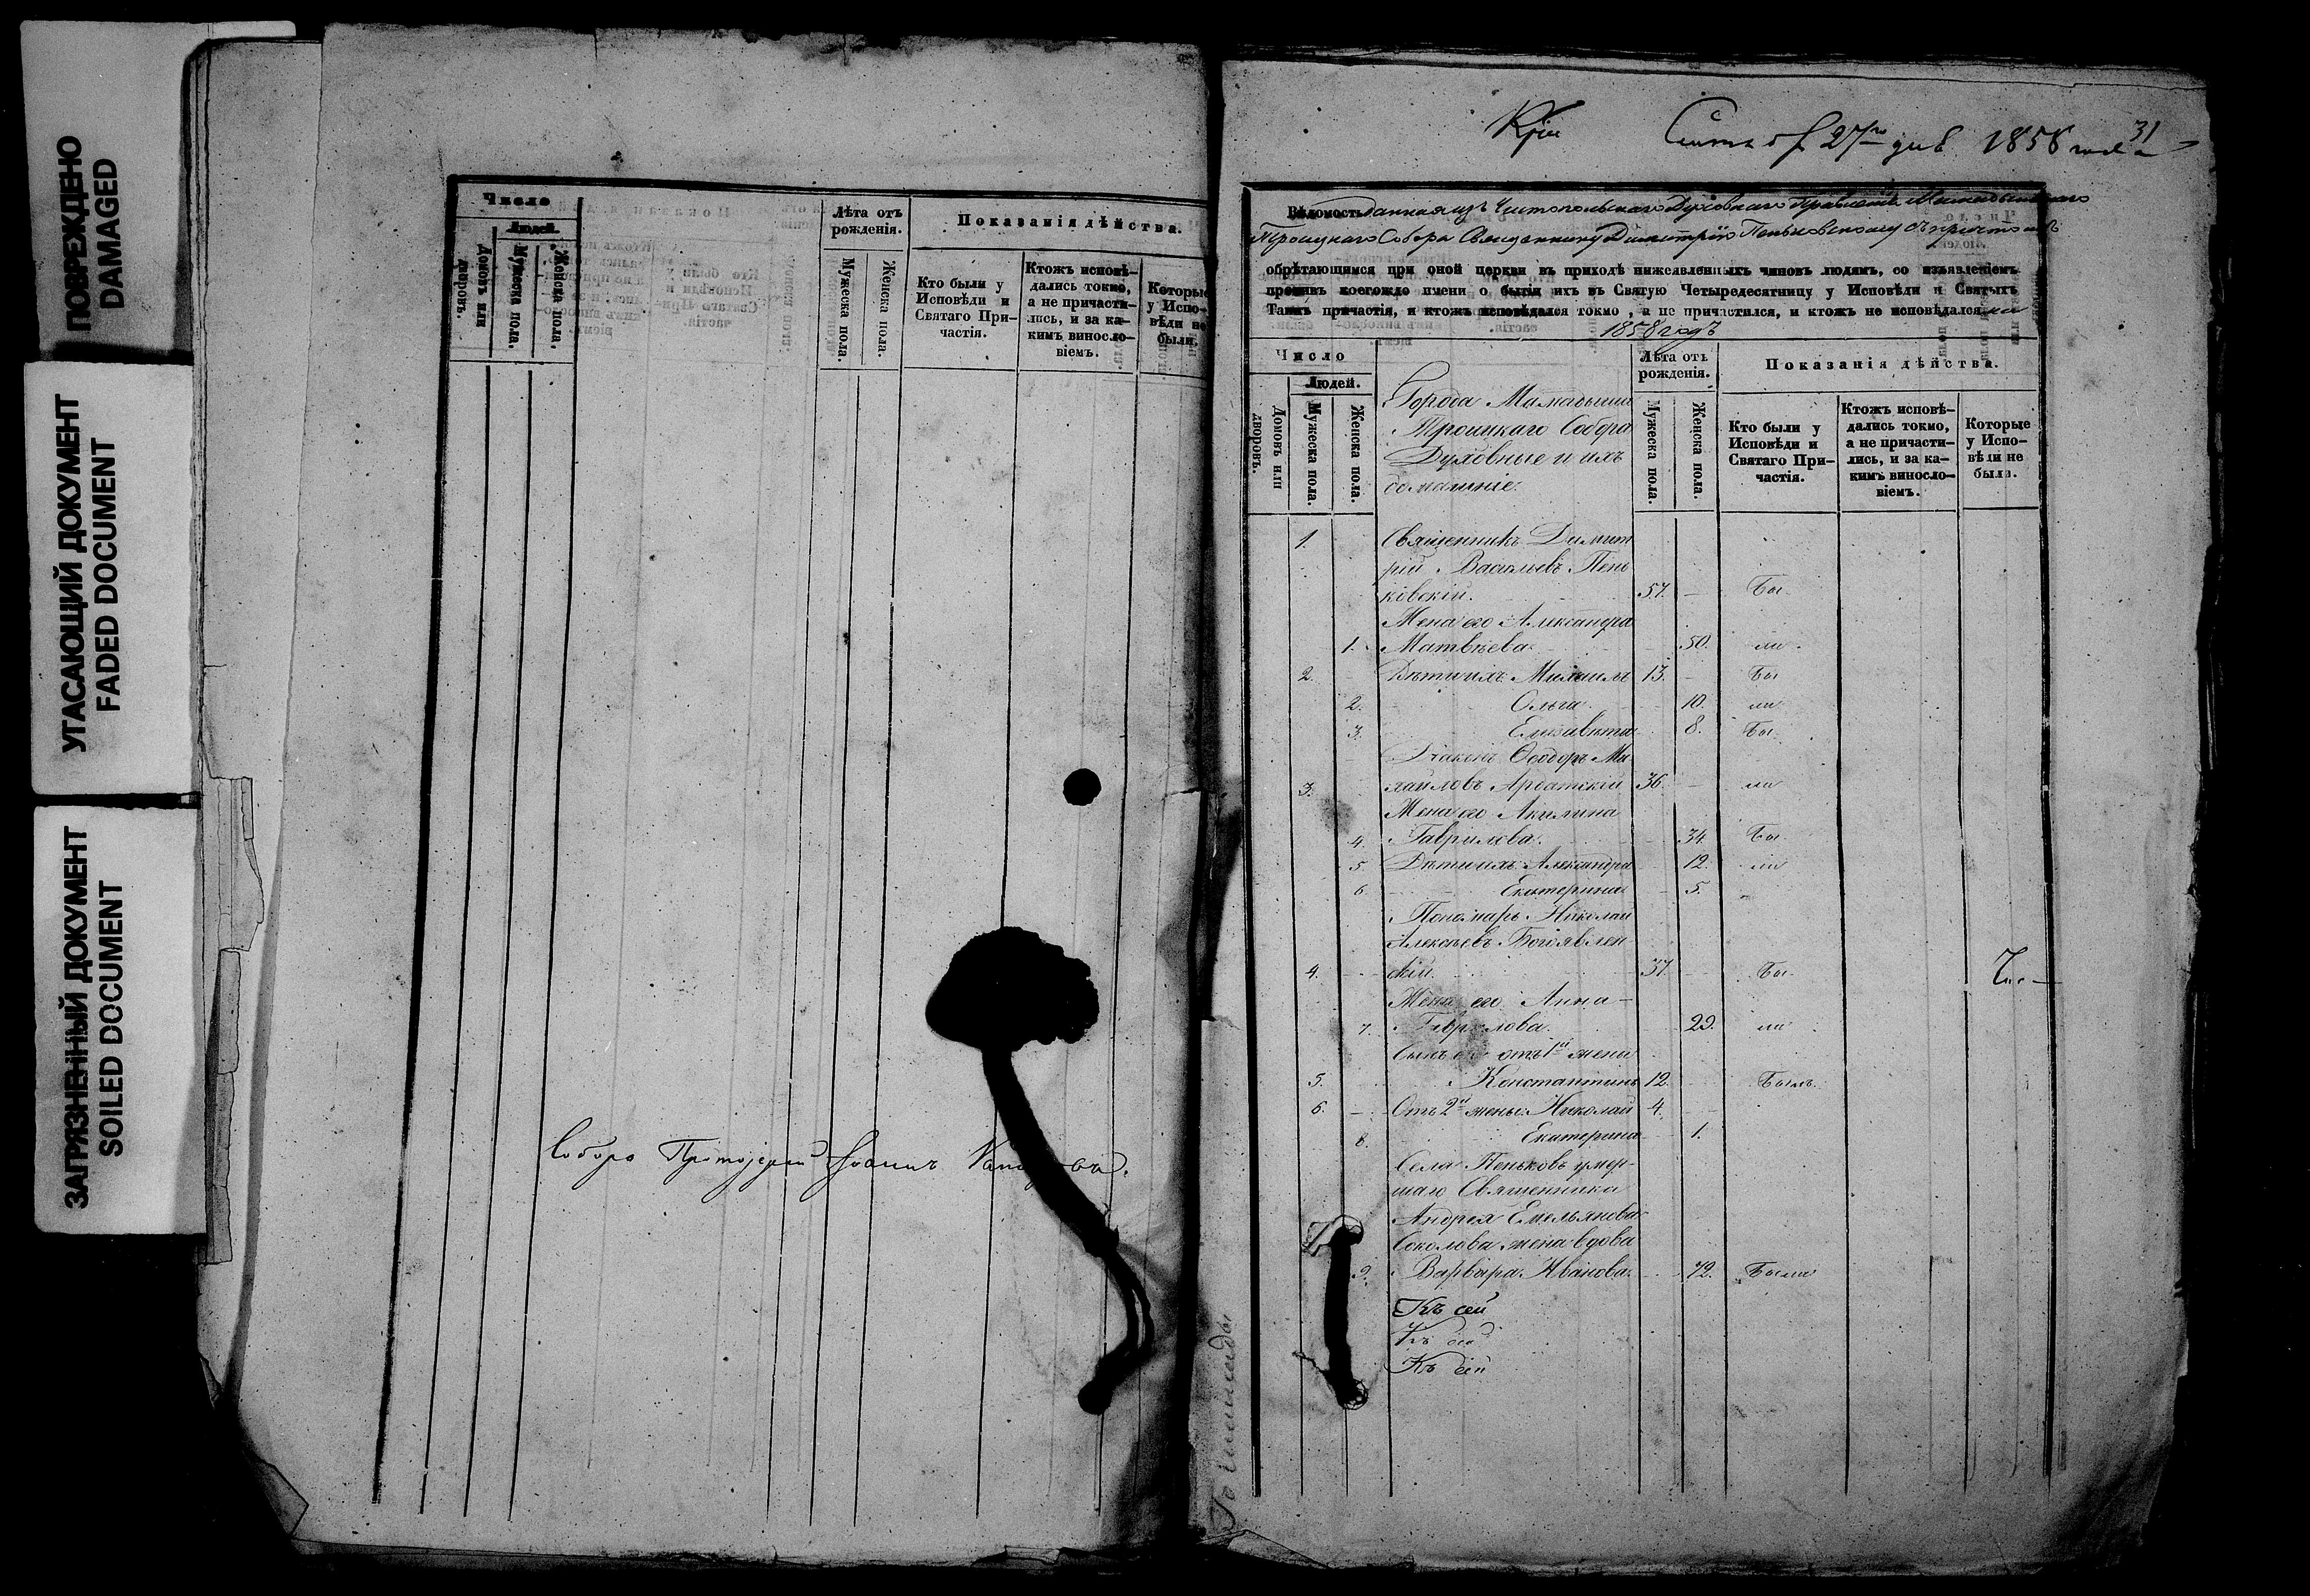 ПОВРЕЖДЕНО
DAMAGED
УГАСАЮЩИЙ ДОКУМЕНТ
FADED DOCUMENT
ЗАГРЯЗНЕННЫЙ ДОКУМЕНТ
SOILED DOCUMENT
Число
Людей.
Домовъ или дворовъ.
Мужеска пола.
Женска пола.
Лѣта отъ
рожденія.
Мужеска пола.
Женска пола.
Показанія дѣйства.
Кто были у
Исповѣди и
Святаго При-
частія.
Ктожъ исповѣ-
дались токмо,
а не причасти-
лись, и за ка-
кимъ винсло-
віемъ.
Которые
у Испо-
вѣди не
были.
Соборо Протоіерей Іоаннъ
27го дня 1858 года
31
Вѣдомость данная изъ Чистопольскаго Духовнаго Правленія Мамадышскаго
Троицкаго Собора Священнику Димитрію Пеньковскому съ причтомъ
обрѣтающимся при оной церкви въ приходѣ нижеявленныхъ чиновъ людямъ, со изъявленіемъ
противъ коегождо имени о бытіи ихъ въ Святую Четыредесятницу у Исповѣди и Святыхъ
Таинъ причастія, и ктожъ исповѣдался токмо, а не причастился, и ктожъ не исповѣдался на
1858 годъ
Число
Людей.
Домовъ или дворовъ.
Мужеска пола.
Женска пола.
Города Мамадыша
Троицкаго Собора
Духовные и ихъ
домашніе.
Лѣта отъ
рожденія.
Мужеска пола.
Женска пола.
Показанія дѣйства.
Кто были у
Исповѣди и
Святаго При-
частія.
Ктожъ исповѣ-
дались токмо,
а не причасти-
лись, и за ка-
кимъ винсло-
віемъ.
Которые
у Испо-
вѣди не
были.
1. Священникъ Димит
рій Васильевъ Пень
ковскій. 57. Бы
Жена его Александра
1. Матвѣева 50. ли
2. Дѣти ихъ Михаилъ 13. Бы
2. Ольга 10. ли
3. Елизавета 8. Бы
Діаконъ Ѳеодоръ Ми
3. хайловъ Ардатскій 36. ли
Жена его Акилина
4. Гаврилова. 34 Бы
5. Дѣти ихъ Александра 12. ли
6. Екатерина 5.
Пономарь Николай
Алексѣевъ Богоявлен
4. скій. 37. Бы
Жена его Анна
7. Гаврилова. 29. ли
Сынъ его отъ 1й жены
5. Константинъ 12. Былъ
6. Отъ 2й жены Николай 4.
8. Екатерина 1.
Села Пеньковъ умер-
шаго Священника
Андрея Емельянова
Соколова жена вдова
9. Варвара Иванова. 72. Была
Къ сей
Къ сей
Къ сей